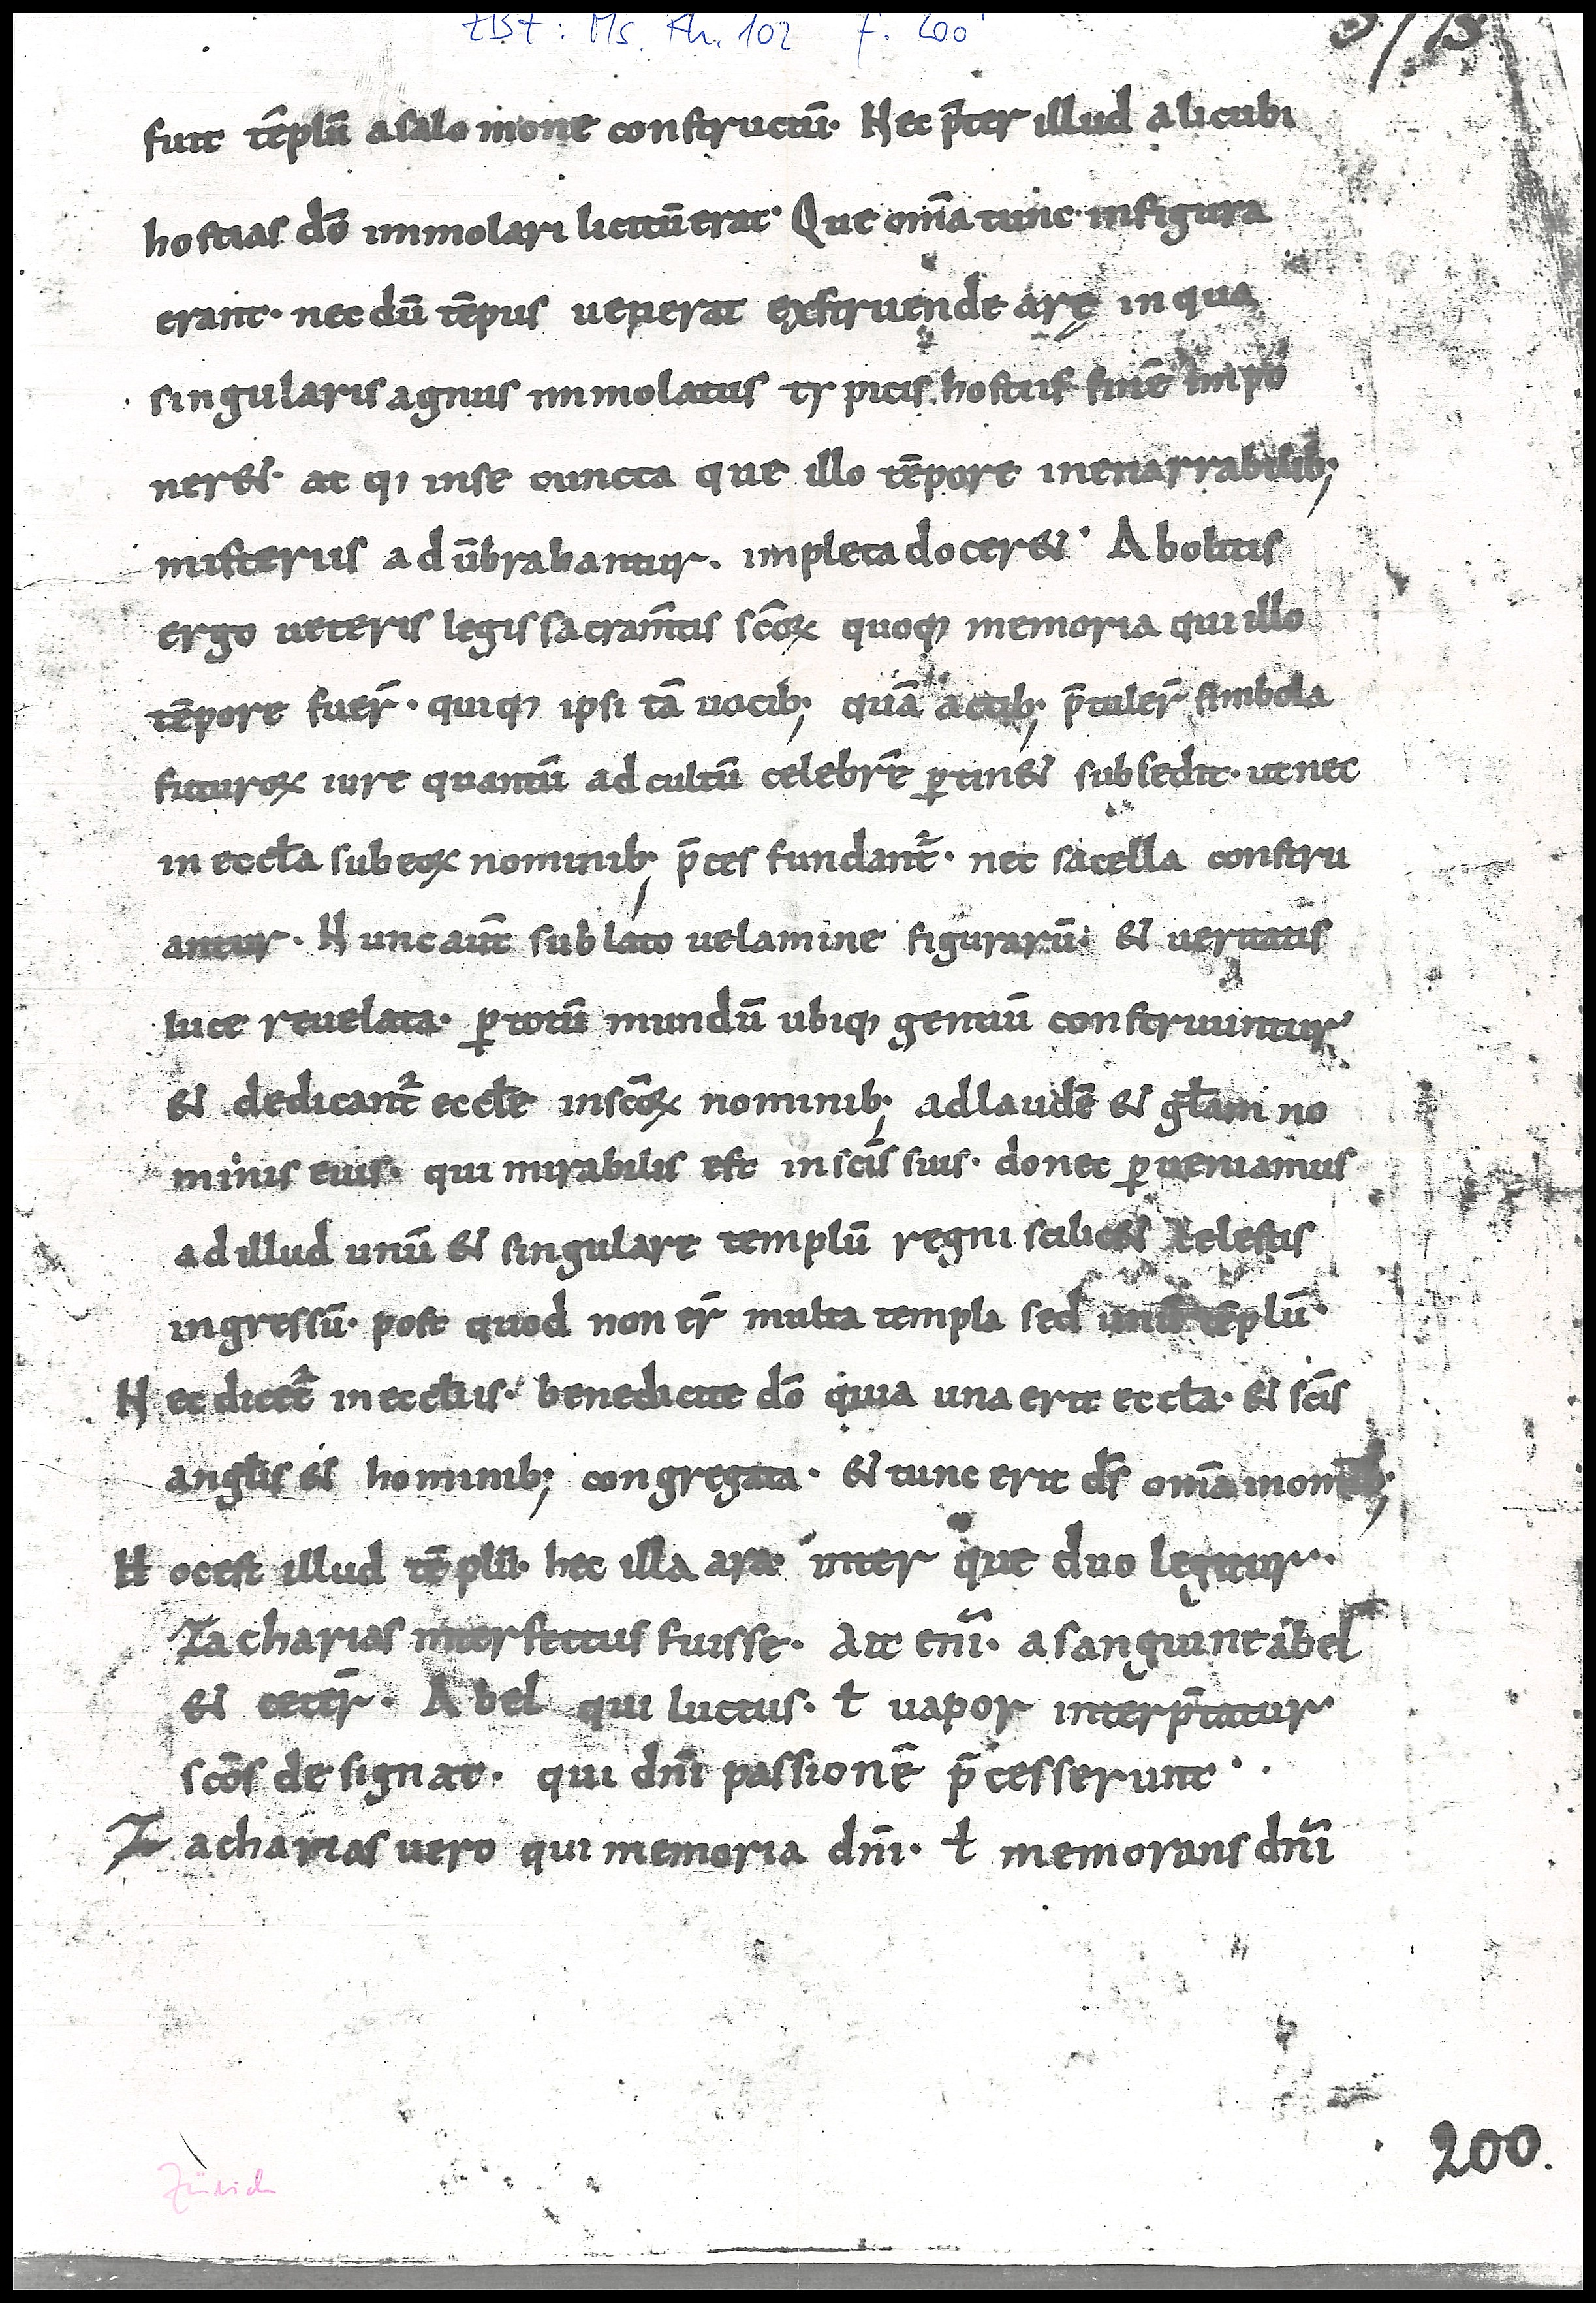 ZBZ: Ms. Rh. 102 f. 200
fuit te̅plu̅ asalomone constructu̅· Nec p̅ter illud alicubi
hostias do̅ immolari licitu̅ erat· Que om̅a tunc infigura
erant· nec du̅ te̅pus uenerat exstruende arę in qua
singularis agnus immolatus typicis hostiis fine̅ impo
ner&· at q; inse cuncta que illo te̅pore inenarrabilib;
misteriis adu̅brabantur· impleta docer&· Abolitis
ergo ueteris legis sacram̅tis sc̅oꝝ quoq; memoria qui illo
te̅pore fuer̅· quiq; ipsi ta̅ uocib; qua̅ actib; p̅tuler̅ simbola
futuroꝝ iure quantu̅ ad cultu̅ celebre̅ ꝑtin& subsedit· ut nec
in eccl̅a sub eoꝝ nominib; p̅ces fundant̅· nec sacella constru
antur· Nunc aut̅ sublato uelamine figuraru̅· & ueritatis
luce reuelata· ꝑ totu̅ mundu̅ ubiq; gentiu̅ construuntur
& dedicant̅ eccl̅e insc̅oꝝ nominib; adlaude̅ & gl̅am no
minis eius· qui mirabilis est insc̅is suis· donec ꝑueniamus
ad illud unu̅ & singulare templu̅ regni scilic& celestis
ingressu̅· post quod non er̅ multa templa sed unu̅ te̅plu̅·
Nec dicet̅ in eccl̅iis· benedicite do̅ quia una erit eccl̅a· & sc̅is
angl̅is & hominib; congregata· & tunc erit ds̅ om̅a inomnib;
Hoc est illud te̅plu̅· hec illa ara· inter que duo legitur·
Zacharias interfectus fuisse· Ait eni̅· asanguine abel
& ceter̅· Abel qui luctus· ł uapor interp̅tatur
sc̅os designat· qui dn̅i passione̅ p̅cesserunt·
Zacharias uero qui memoria dn̅i· ł memorans dn̅i
200.
Zürich